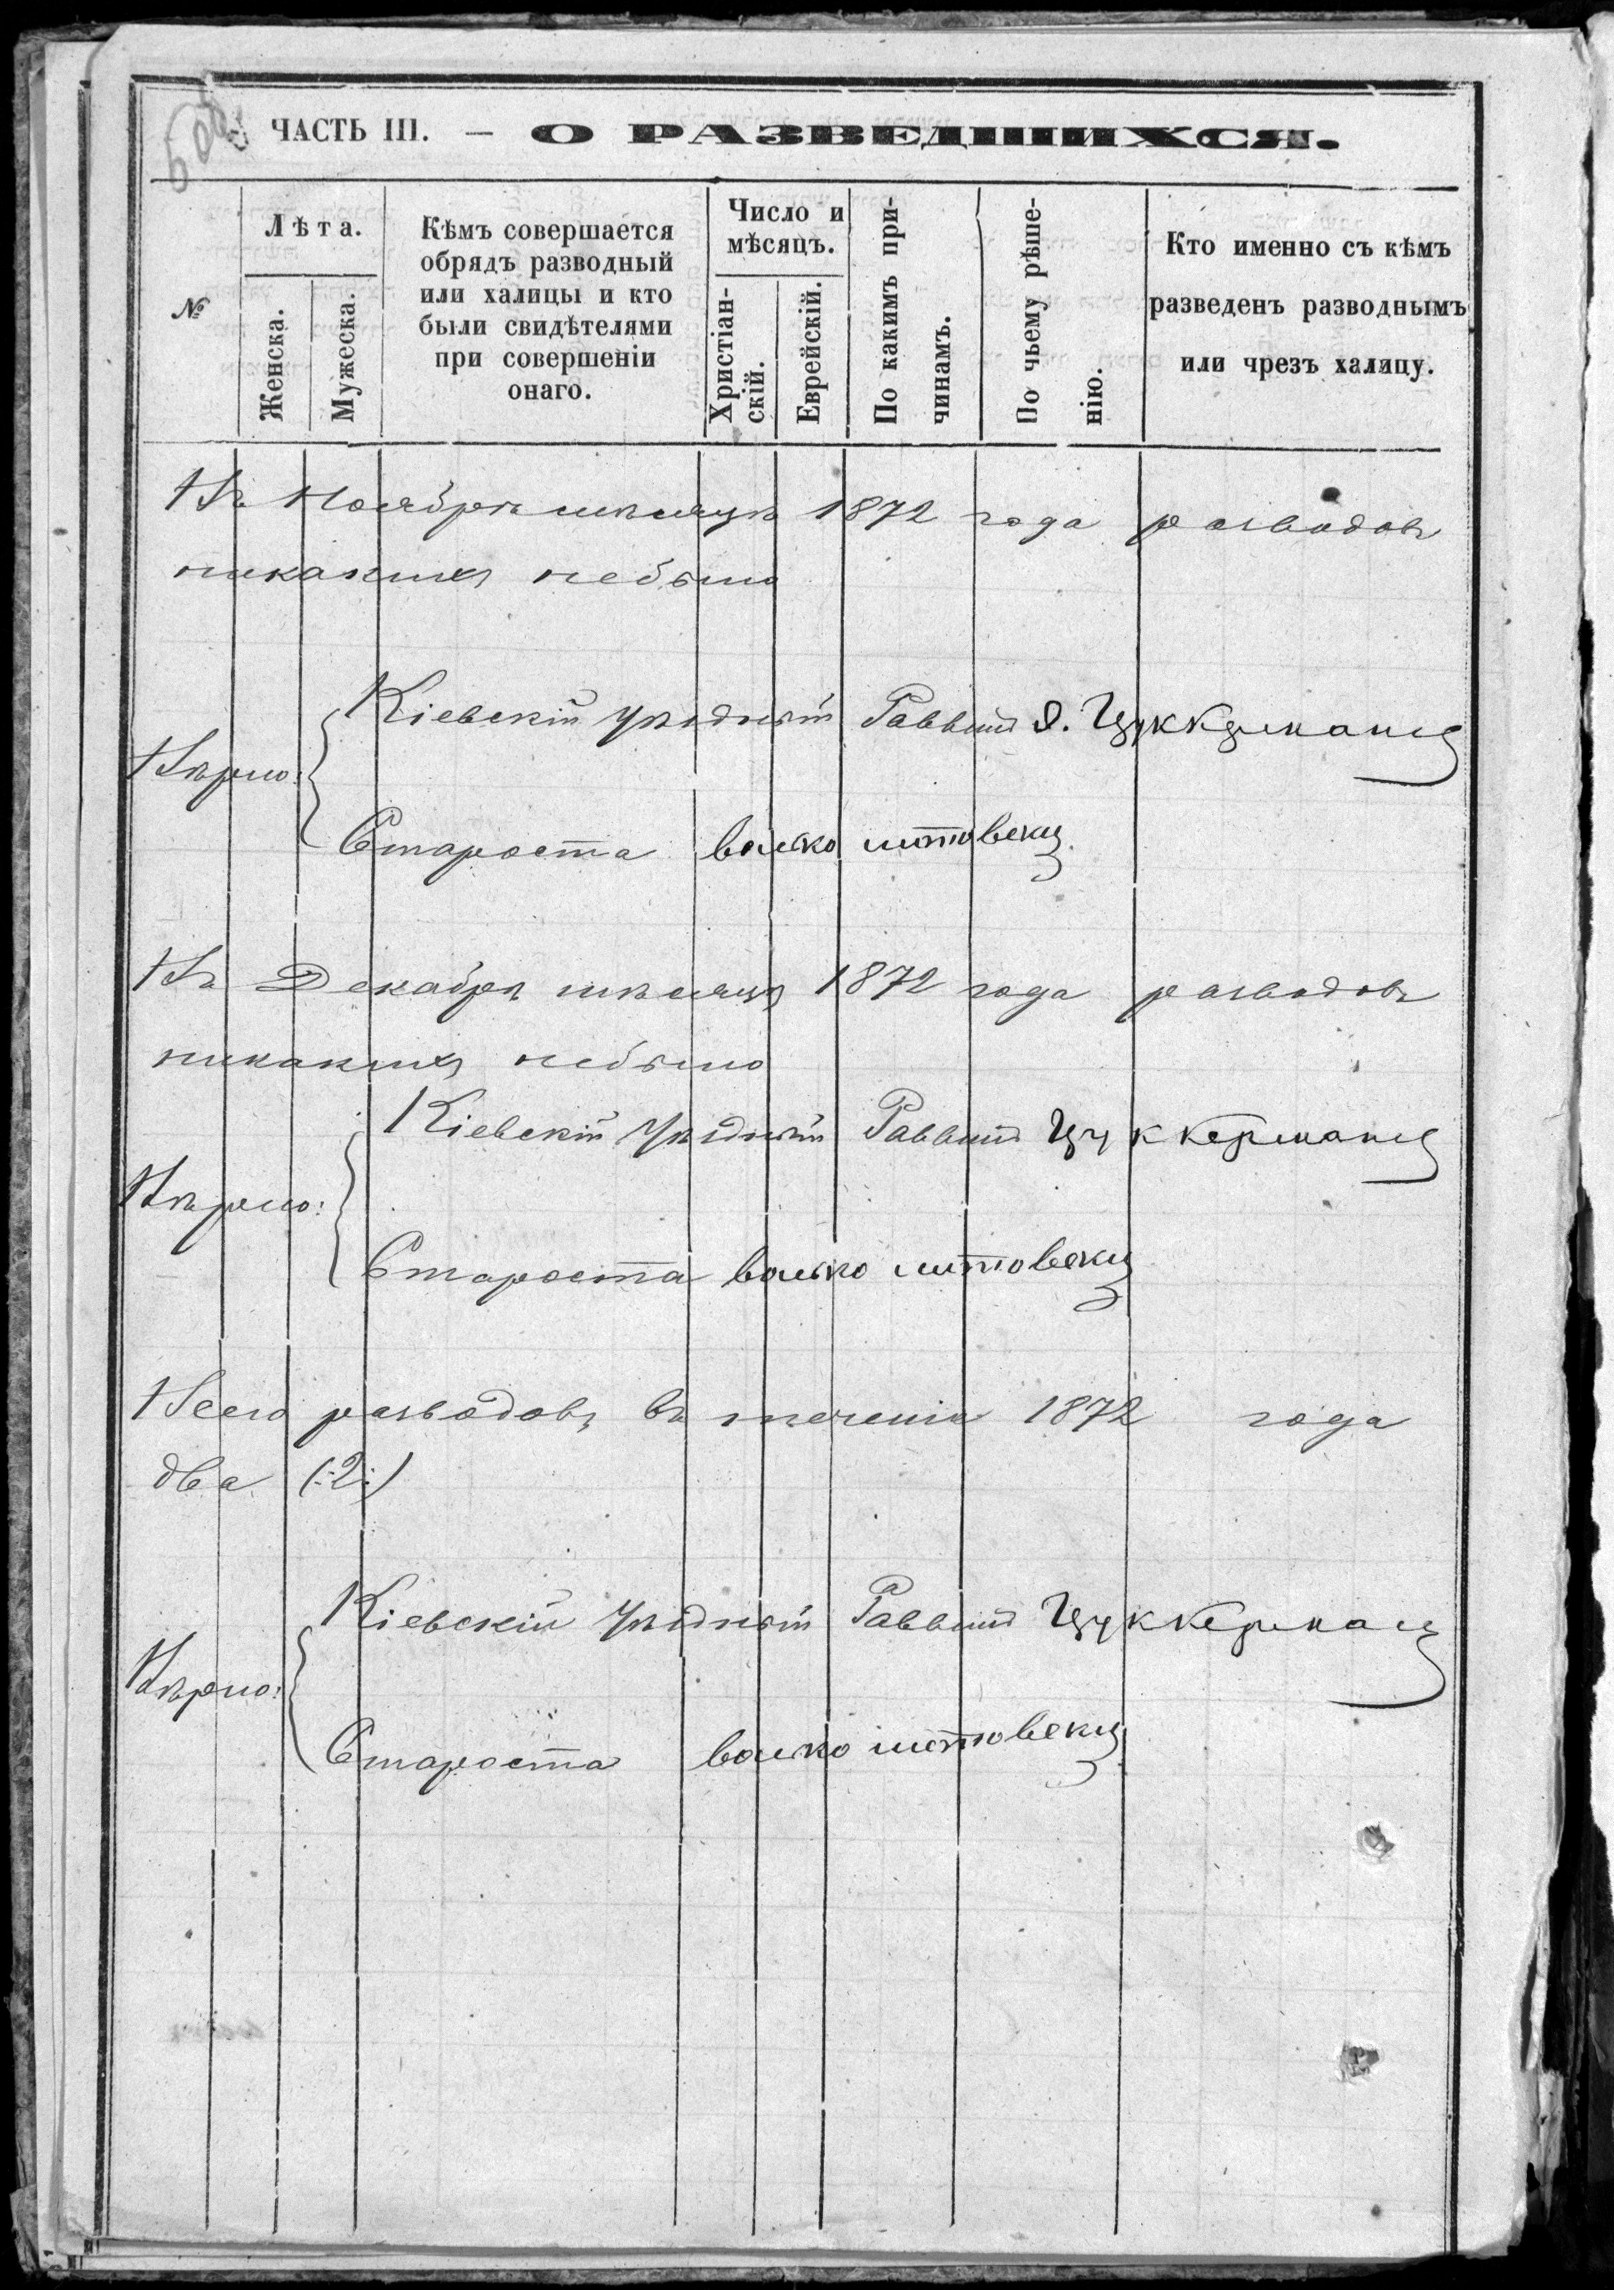 ЧАСТЬ III. — О РАЗВЕДШИХСЯ.
№
Лѣта.
Женска.
Мужеска.
Кѣмъ совершается
обрядъ разводный
или халицы и кто
были свидѣтелями
при совершеніи
онаго.
Число и
мѣсяцъ.
Христіан-
скій.
Еврейскій.
По какимъ при-
чинамъ.
По чьему рѣше-
нію.
Кто именно съ кѣмъ
разведенъ разводнымъ
или чрезъ халицу.
Въ Ноябрѣ мѣсяцѣ 1872 года разводовъ
никакихъ небыло
Кіевскій уѣздный Раввинъ Я. Цуккерманъ
Вѣрно:
Староста волько литовскій
Въ Декабрѣ мѣсяцѣ 1872 года разводовъ
никакихъ небыло
Кіевскій Уѣздный Раввинъ Цуккерманъ
Вѣрно:
Староста волько литовскій
Всего разводовъ въ теченіи 1872 года
два (:2:)
Кіевскій Уѣздный Раввинъ Цуккерманъ
Вѣрно:
Староста волько литовскій